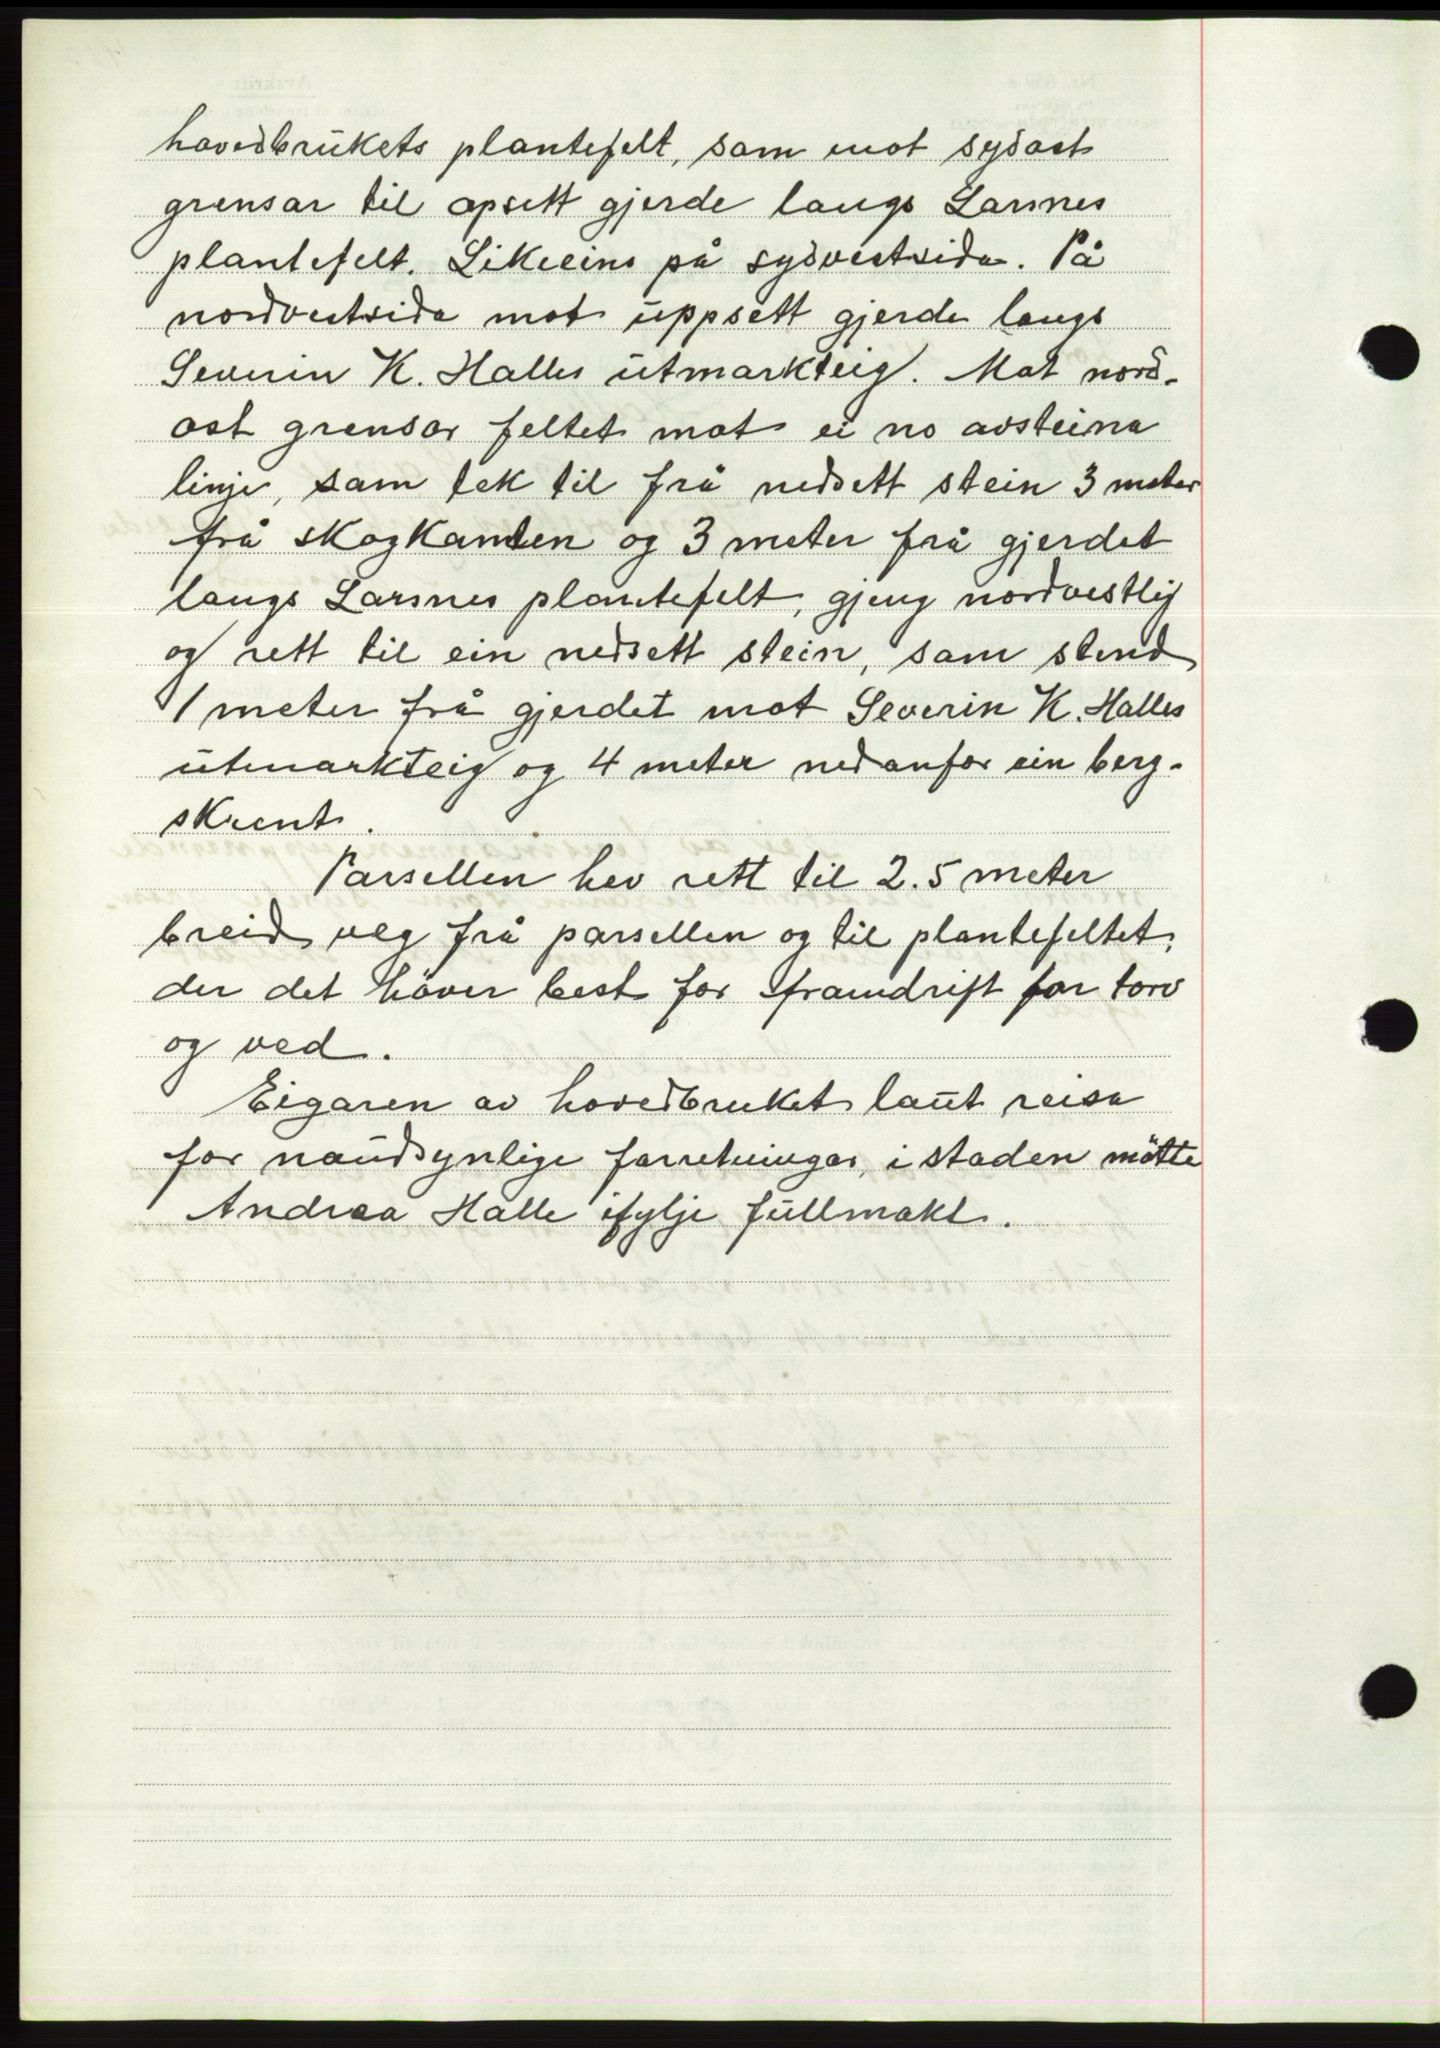 hovedbrukets plantefelt, som mot sydost
grensar til opsett gjerde langs Larsnes
plantefelt. Likeeins på sydvestsida. På
nordvestsida mot uppsett gjerde langs
Severin K. Halles utmarkteig. Mot nord-
ost grensar feltet mot ei no avsteina
linje, som tek til frå nedsett stein 3 meter
frå skogkanten og 3 meter frå gjerdet
langs Larsnes plantefelt, gjeng nordvestlig
og rett til ein nedsett stein, som stend
1 meter frå gjerdet mot Severin K. Halles
utmarkteig og 4 meter nedanfor ein berg-
skrent.
Parsellen hev rett til 2.5 meter
breid veg frå parsellen og til plantefeltet,
der det höver best for framdrift for torv
og ved.
Eigaren av hovedbruket laut reisa
for naudsynlige forretningar, i staden mötte
Andrea Halle ifylje fullmakt.